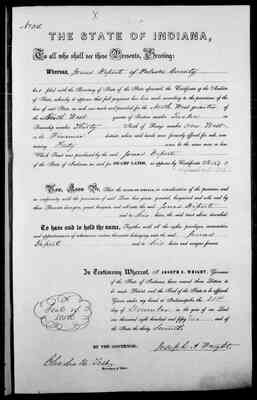 THE STATE OF INDIANA,
To all who shall see these Presents, Greeting:
Whereas, James Depert of Pulaski County
has filed with the Secretary of State of the State aforesaid, the Certificate of the Auditor
of State, whereby it appears that full payment has been made according to the provisions of the
law of State in such case made and provided for the North West quarter of
the South West of Section number Twelve in
Township number Thirty of Range number One West
in the Winamac district when such lands were formerly offered for sale, containing
Forty acres the same more or less
Which Tract was purchased by the said James Depert
of the State of Indiana as and for SWAMP LANDS, as appears by Certificate
Now Know Ye, That the STATE OF INDIANA, in consideration of the premises, and
in conformity with the provisions of said Law, has given, granted, bargained and sold, and by
these Presents does give, grant, bargain, and sell unto the said James Depert
and to his heirs, the said tract above described.
To have and to hold the same, Together with all the rights, privileges, immunities
and appurtenances of whatsoever nature thereunto belonging unto the said James
Depert and to his heirs and assigns forever.
In Testimony Whereof, I, JOSEPH A. WRIGHT, Governor
of the State of Indiana, have caused these Letters to
be made Patent and the Seal of the State to be affixed.
Given under my hand at Indianapolis the
day of December in the year of our Lord
one thousand eight hundred and fifty and of
the State the thirty seventh
Seal of
State
BY THE GOVERNOR.
Joseph A Wright
Charles H. Test
Secretary of State.